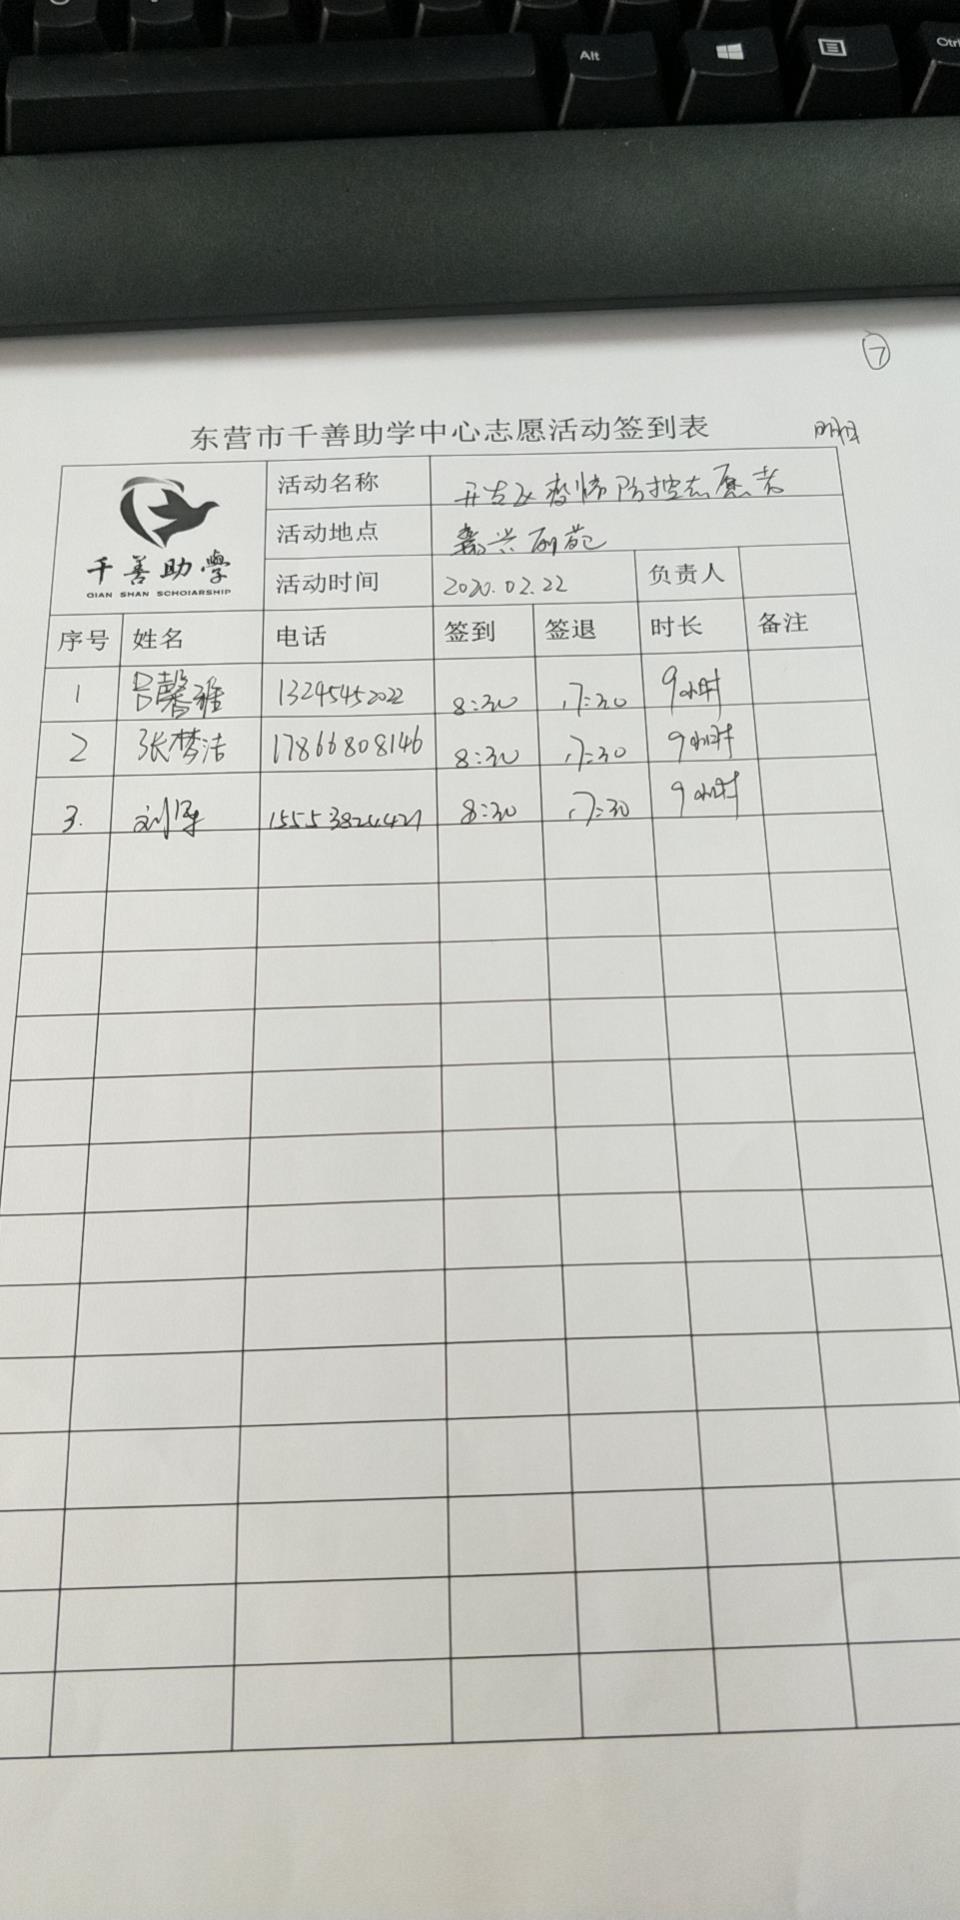 Alt
Ctrl
7
东营市千善助学中心志愿活动签到表
千善助學
QIAN SHAN SCHOIARSHIP
活动名称 开发区疫情防控志愿者
活动地点 嘉兴丽苑
活动时间 2020.02.22 负责人
序号 姓名 电话 签到 签退 时长 备注
1 吕馨雅 13295452022 8:30 17:30 9小时
2 张梦洁 17866808146 8:30 17:30 9小时
3. 刘 8:30 17:30 9小时